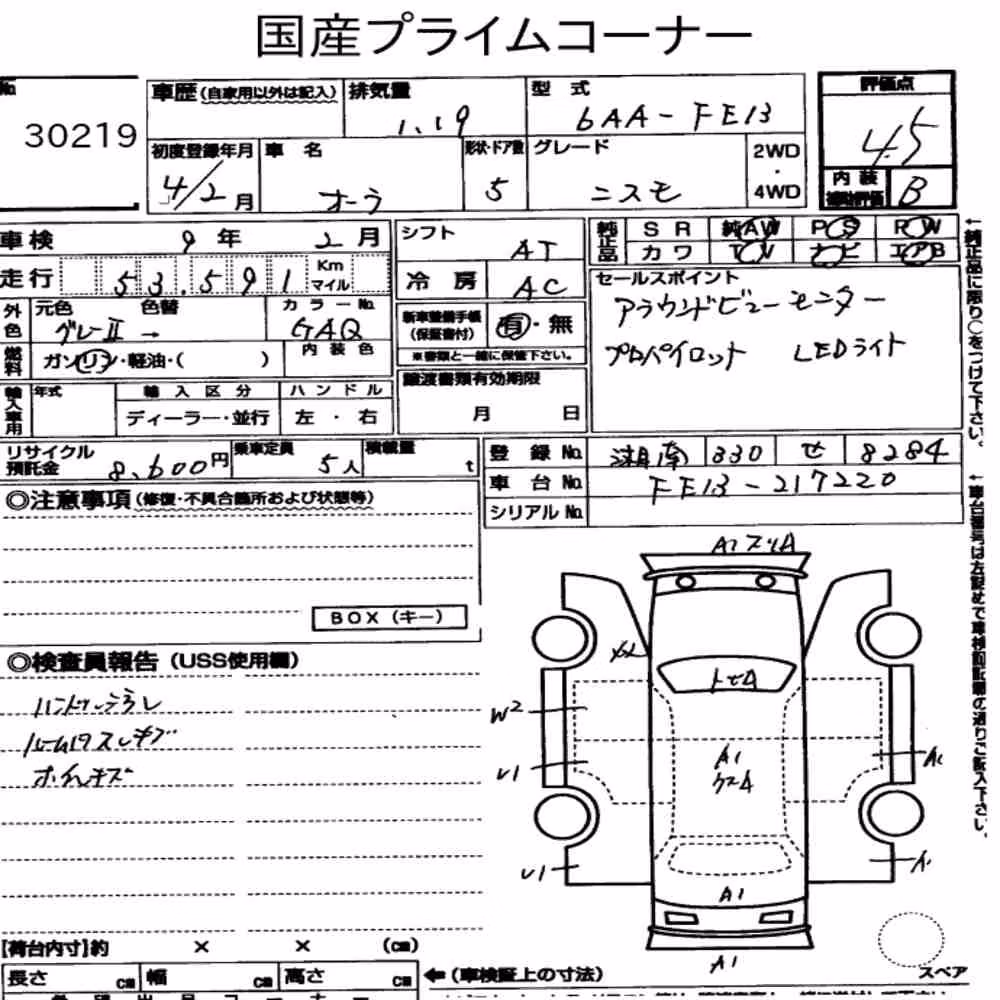 国産プライムコーナー
No
30219
車歴(自車用以外は記入) 排気量 1.19 型式 6AA-FE13
評価点 4.5
初度登録年月 4/2月 車名 オーラ 形状・ドア数 5 グレード ニスモ 2WD・4WD
内装補助評価 B
車検 9年 2月 シフト AT
純正品 SR 純AW PS PW
カワ TV ナビ エアB
走行 53,591 Km マイル 冷房 AC
外色 元色 グレーII 色替 → カラーNo. GAQ
新車整備手帳(保証書付) 有・無
※書類と一緒に保管下さい。
セールスポイント
アラウンドビューモニター
プロパイロット LEDライト
燃料 ガソリン・軽油・( ) 内装色
輸入車用 年式 輸入区分 ディーラー・並行 ハンドル 左・右
譲渡書類有効期限 月 日
リサイクル預託金 8,600円 乗車定員 5人 積載量 t
登録No. 湘南 330 せ 8284
車台No. FE13-217220
シリアルNo.
←純正品に限り○をつけて下さい。
←車台番号は左詰めで車検証記載の通りご記入下さい。
◎注意事項(修復・不具合箇所および状態等)
BOX(キー)
◎検査員報告(USS使用欄)
ハンドルテカレ
ルームリスレキズ
ホイルキズ
A1 スリA
XX
トビA
W2
A1
U1
A1
U1
A1
A1
A1
スペア
[荷台内寸]約 × × (cm)
長さ cm 幅 cm 高さ cm
←(車検証上の寸法)